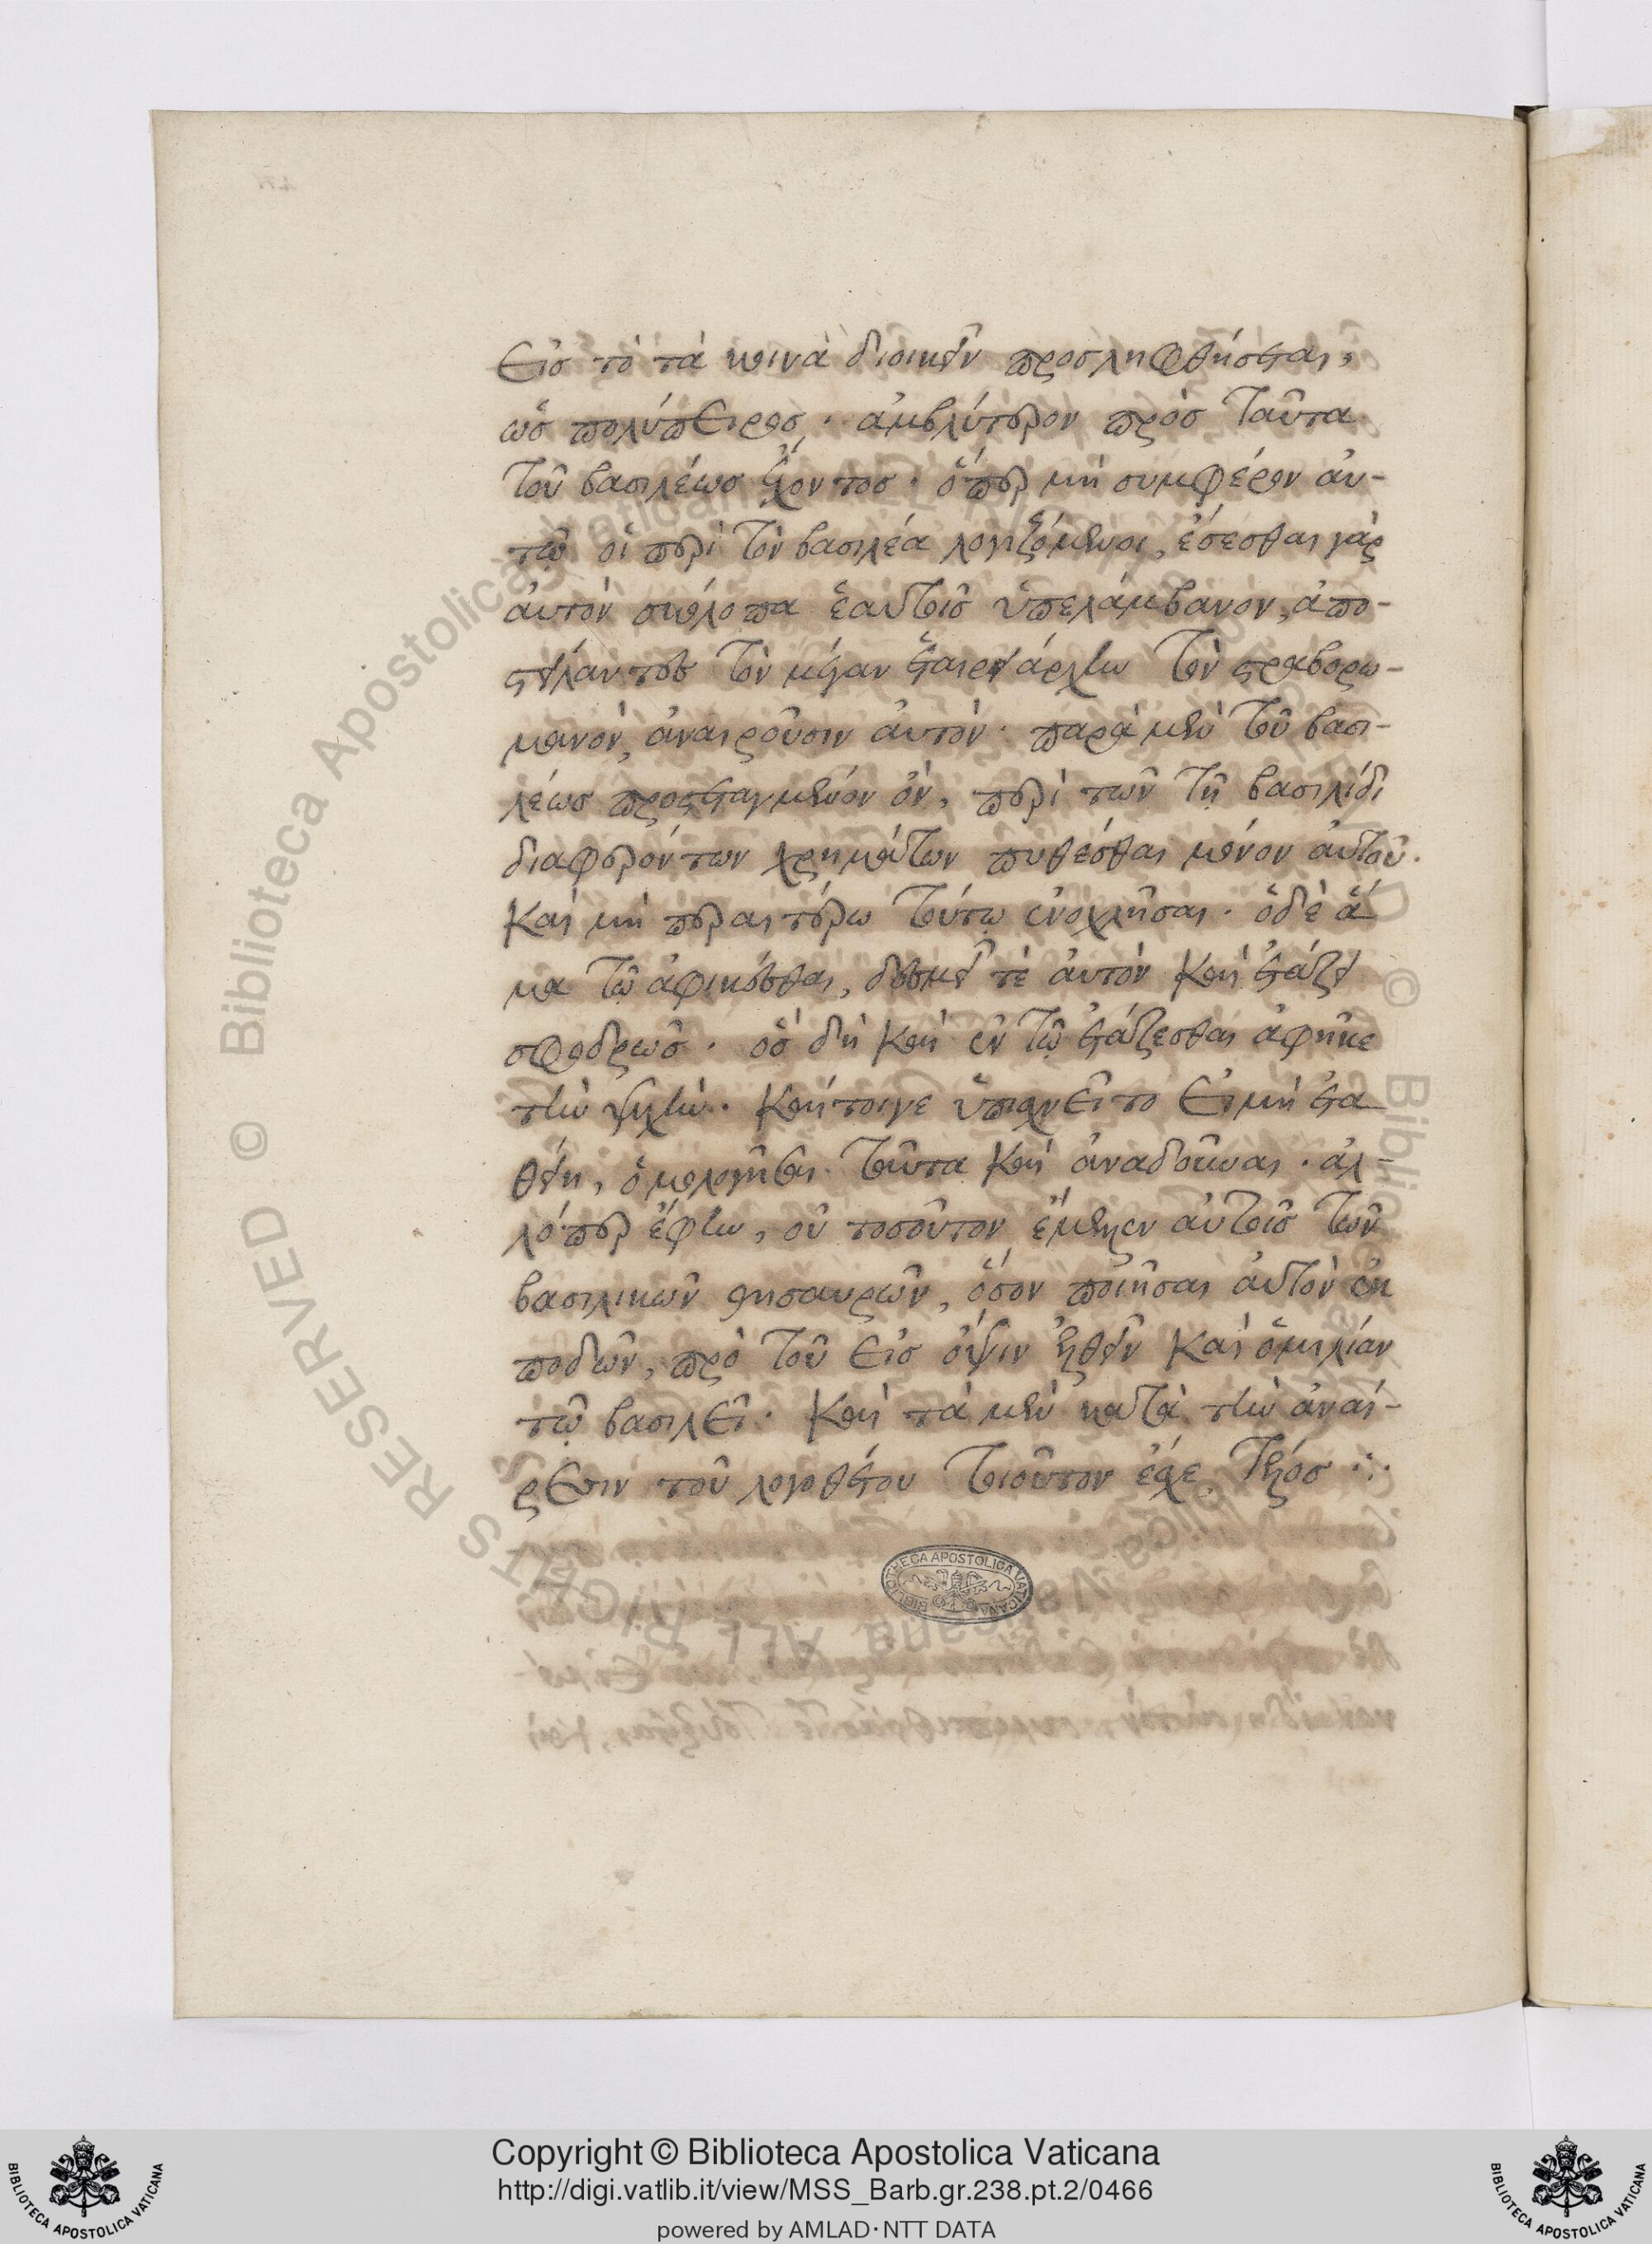 εἰς τὸ τὰ κοινὰ διοικεῖν προσληφθήσεται,
ὡς πολύπειρος, ἀμβλύτερον πρὸς ταῦτα
τοῦ βασιλέως ἔχοντος. ὅπερ μὴ συμφέρον αυ-
τῷ οἱ περὶ τὸν βασιλέα λογιζόμενοι, ἔσεσθαι γὰρ
αὐτὸν σκόλοπα ἑαυτοῖς ὑπελάμβανον, ἀπο-
στείλαντες τὸν μέγαν ἑταιρειάρχην τὸν στραβορω-
μανὸν, ἀναιροῦσιν αὐτόν. παρὰ μὲν τοῦ βασι-
λέως προστεταγμένον ὂν, περὶ τῶν τῇ βασιλίδι
διαφερόντων χρημάτων πυθέσθαι μόνον αὐτοῦ.
καὶ μὴ περαιτέρω τούτῳ ἐνοχλῆσαι. ὁ δὲ ἅ
μα τῷ ἀφικέσθαι, δεσμεῖ τὲ αὐτὸν καὶ ἐτάζει
σφοδρῶς. ὃς δὴ καὶ ἐν τῷ ἐτάζεσθαι ἀφῆκε
τὴν ψυχήν. καίτοιγε ὑπισχνεῖτο εἰ μὴ ἐτα
θείη, ὁμολογῆσαι ταῦτα καὶ ἀναδοῦναι. ἀλ-
λ' ὅπερ ἔφην, οὐ τοσοῦτον ἔμελεν αὐτοῖς τῶν
βασιλικῶν θησαυρῶν, ὅσον ποιῆσαι αὐτὸν ἐκ
ποδῶν, πρὸ τοῦ εἰς ὄψιν ἐλθεῖν καὶ ὁμιλίαν
τῷ βασιλεῖ. καὶ τὰ μὲν κατὰ τὴν ἀναί-
ρεσιν τοῦ λογοθέτου τοιοῦτον ἔσχε τέλος ⁘
BIBLIOTECA APOSTOLICA VATICANA
© Biblioteca Apostolica Vaticana ALL RIGHTS RESERVED
Copyright © Biblioteca Apostolica Vaticana
http://digi.vatlib.it/view/MSS_Barb.gr.238.pt.2/0466
powered by AMLAD·NTT DATA
BIBLIOTECA APOSTOLICA VATICANA
BIBLIOTECA APOSTOLICA VATICANA